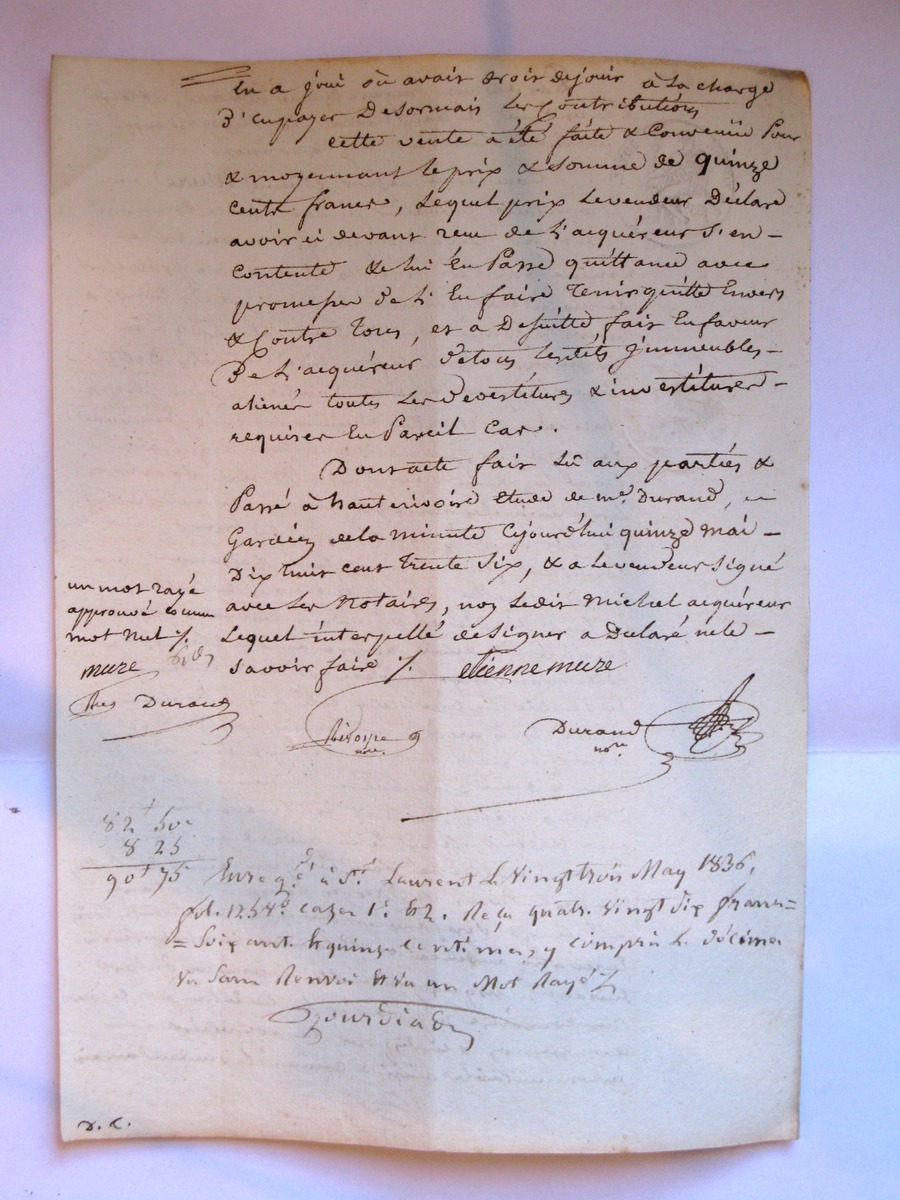 En a joui où avait droit de jouir à La charge
D'En payer Desormais Les Contributions
Cette vente à été faite & Convenüe Pour
& moyennant le prix & somme de quinze
Cents francs, Lequel prix Le vendeur Déclare
avoir ci devant recu de L'acquéreur S'en-
Contente & lui En Passe quittance avec
promesse de L'En faire Tenir quitte Envers
& Contre Tous, et a De suitte fait En faveur
De L'acquéreur de tous Lesdits Jmmeubles-
aliénés toutes Les Devestitures & investitures-
requises En Pareil Cas.
Dont acte fait Lû aux parties &
Passé à hauterivoire Etude de me. Durand,
Gardien de la minute Cejourd'hui quinze mai-
Dix huit cent Trente Six, & a Le vendeur Signé
avec Les Notaires, non Ledit Michel acquéreur
Lequel interpellé de Signer a Déclaré ne le-
Savoir faire ./.
etienne mure
un mot rayé
approuvé comme
mot nul ./.
mure
Durand
nre.
Durand
nore
82f 50c
8 25
90f 75
Enregé. à St. Laurent le vingt trois May 1836,
fol. 125 vo. cazes 1e. & 2. Reçu quatre vingt dix francs=
=Soixante & quinze centimes, y compris le décime
Vu Sans Renvoi & Vu un Mot Rayé ./.
D. C.